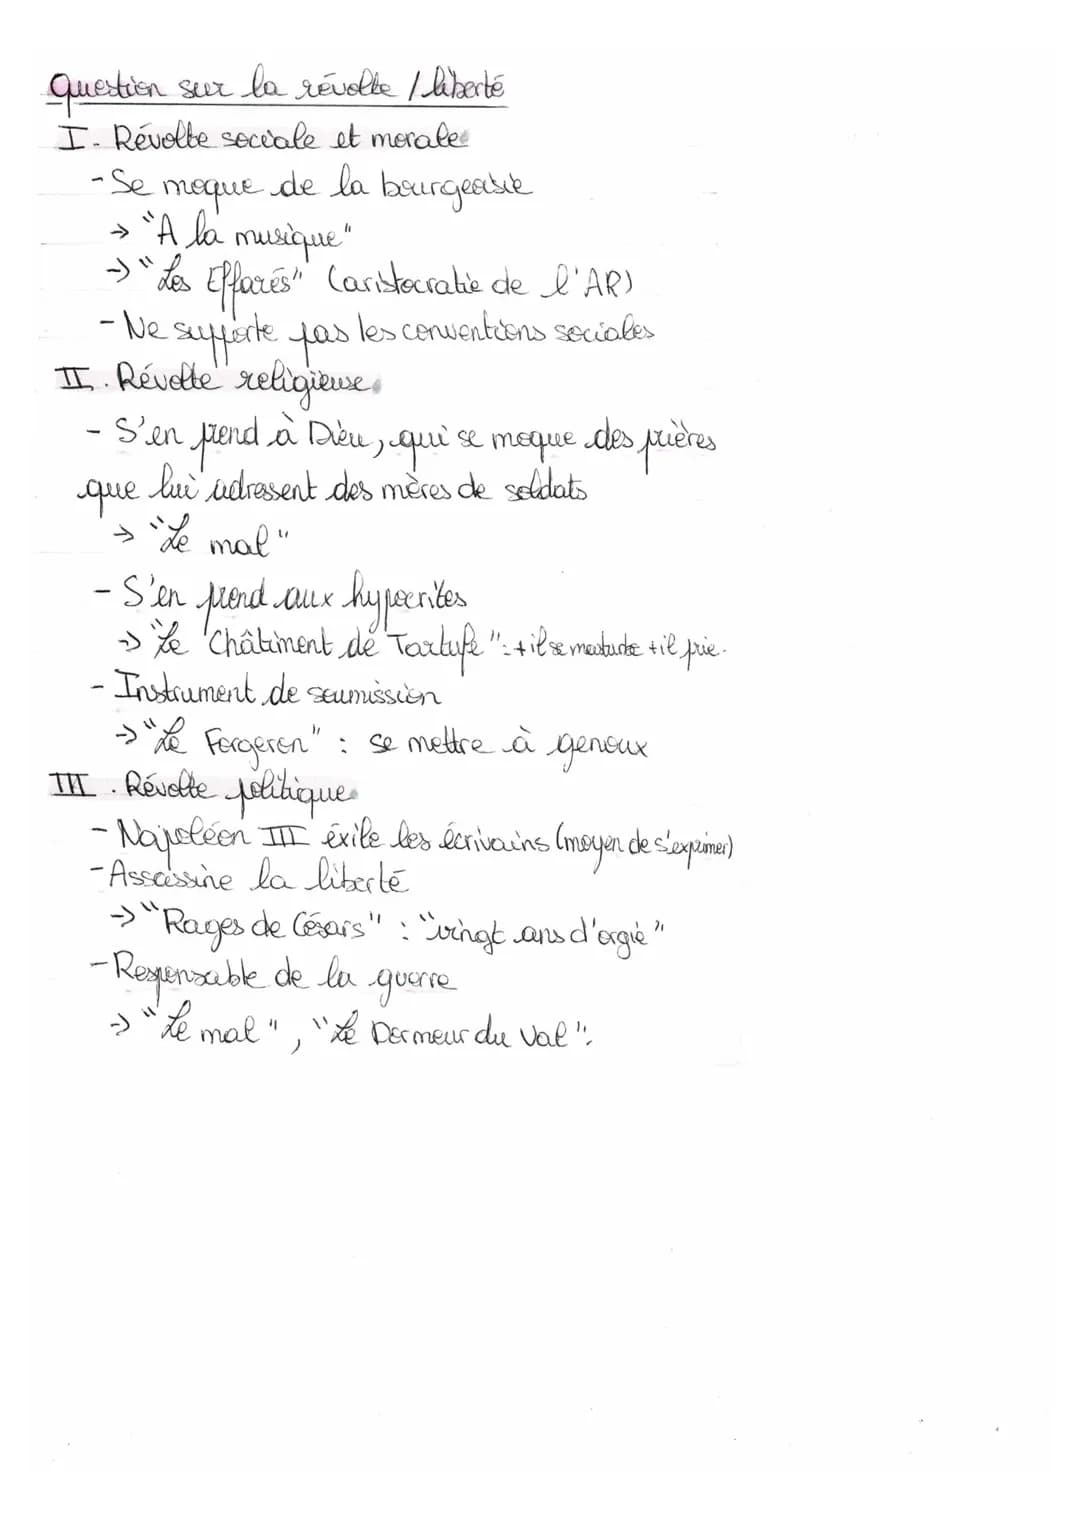 Question sur la révolte / liberté
I - Révolte sociale et morale
- Se moque de la bourgeoisie
→ "A la musique"
→ "Les Effarés" (aristocratie de l'AR)
- Ne supporte pas les conventions sociales
II. Révolte religieuse
- S'en prend à Dieu, qui se moque des prières
que lui adressent des mères de soldats
→ "Le mal"
- S'en prend aux hypocrites
→ "Le Châtiment de Tartufe" : + il se masturbe + il prie.
- Instrument de soumission
→ "Le Forgeron" : se mettre à genoux
III. Révolte politique
- Napoléon III éxile les écrivains (moyen de s'exprimer)
- Assassine la liberté
→ "Rages de Césars" : "vingt ans d'orgie"
- Responsable de la guerre
→ "Le mal", "Le Dormeur du Val".